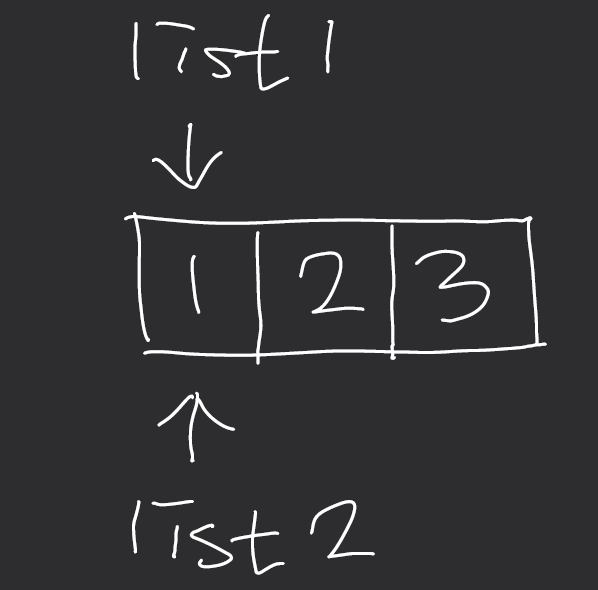 list 1
1 2 3
list 2